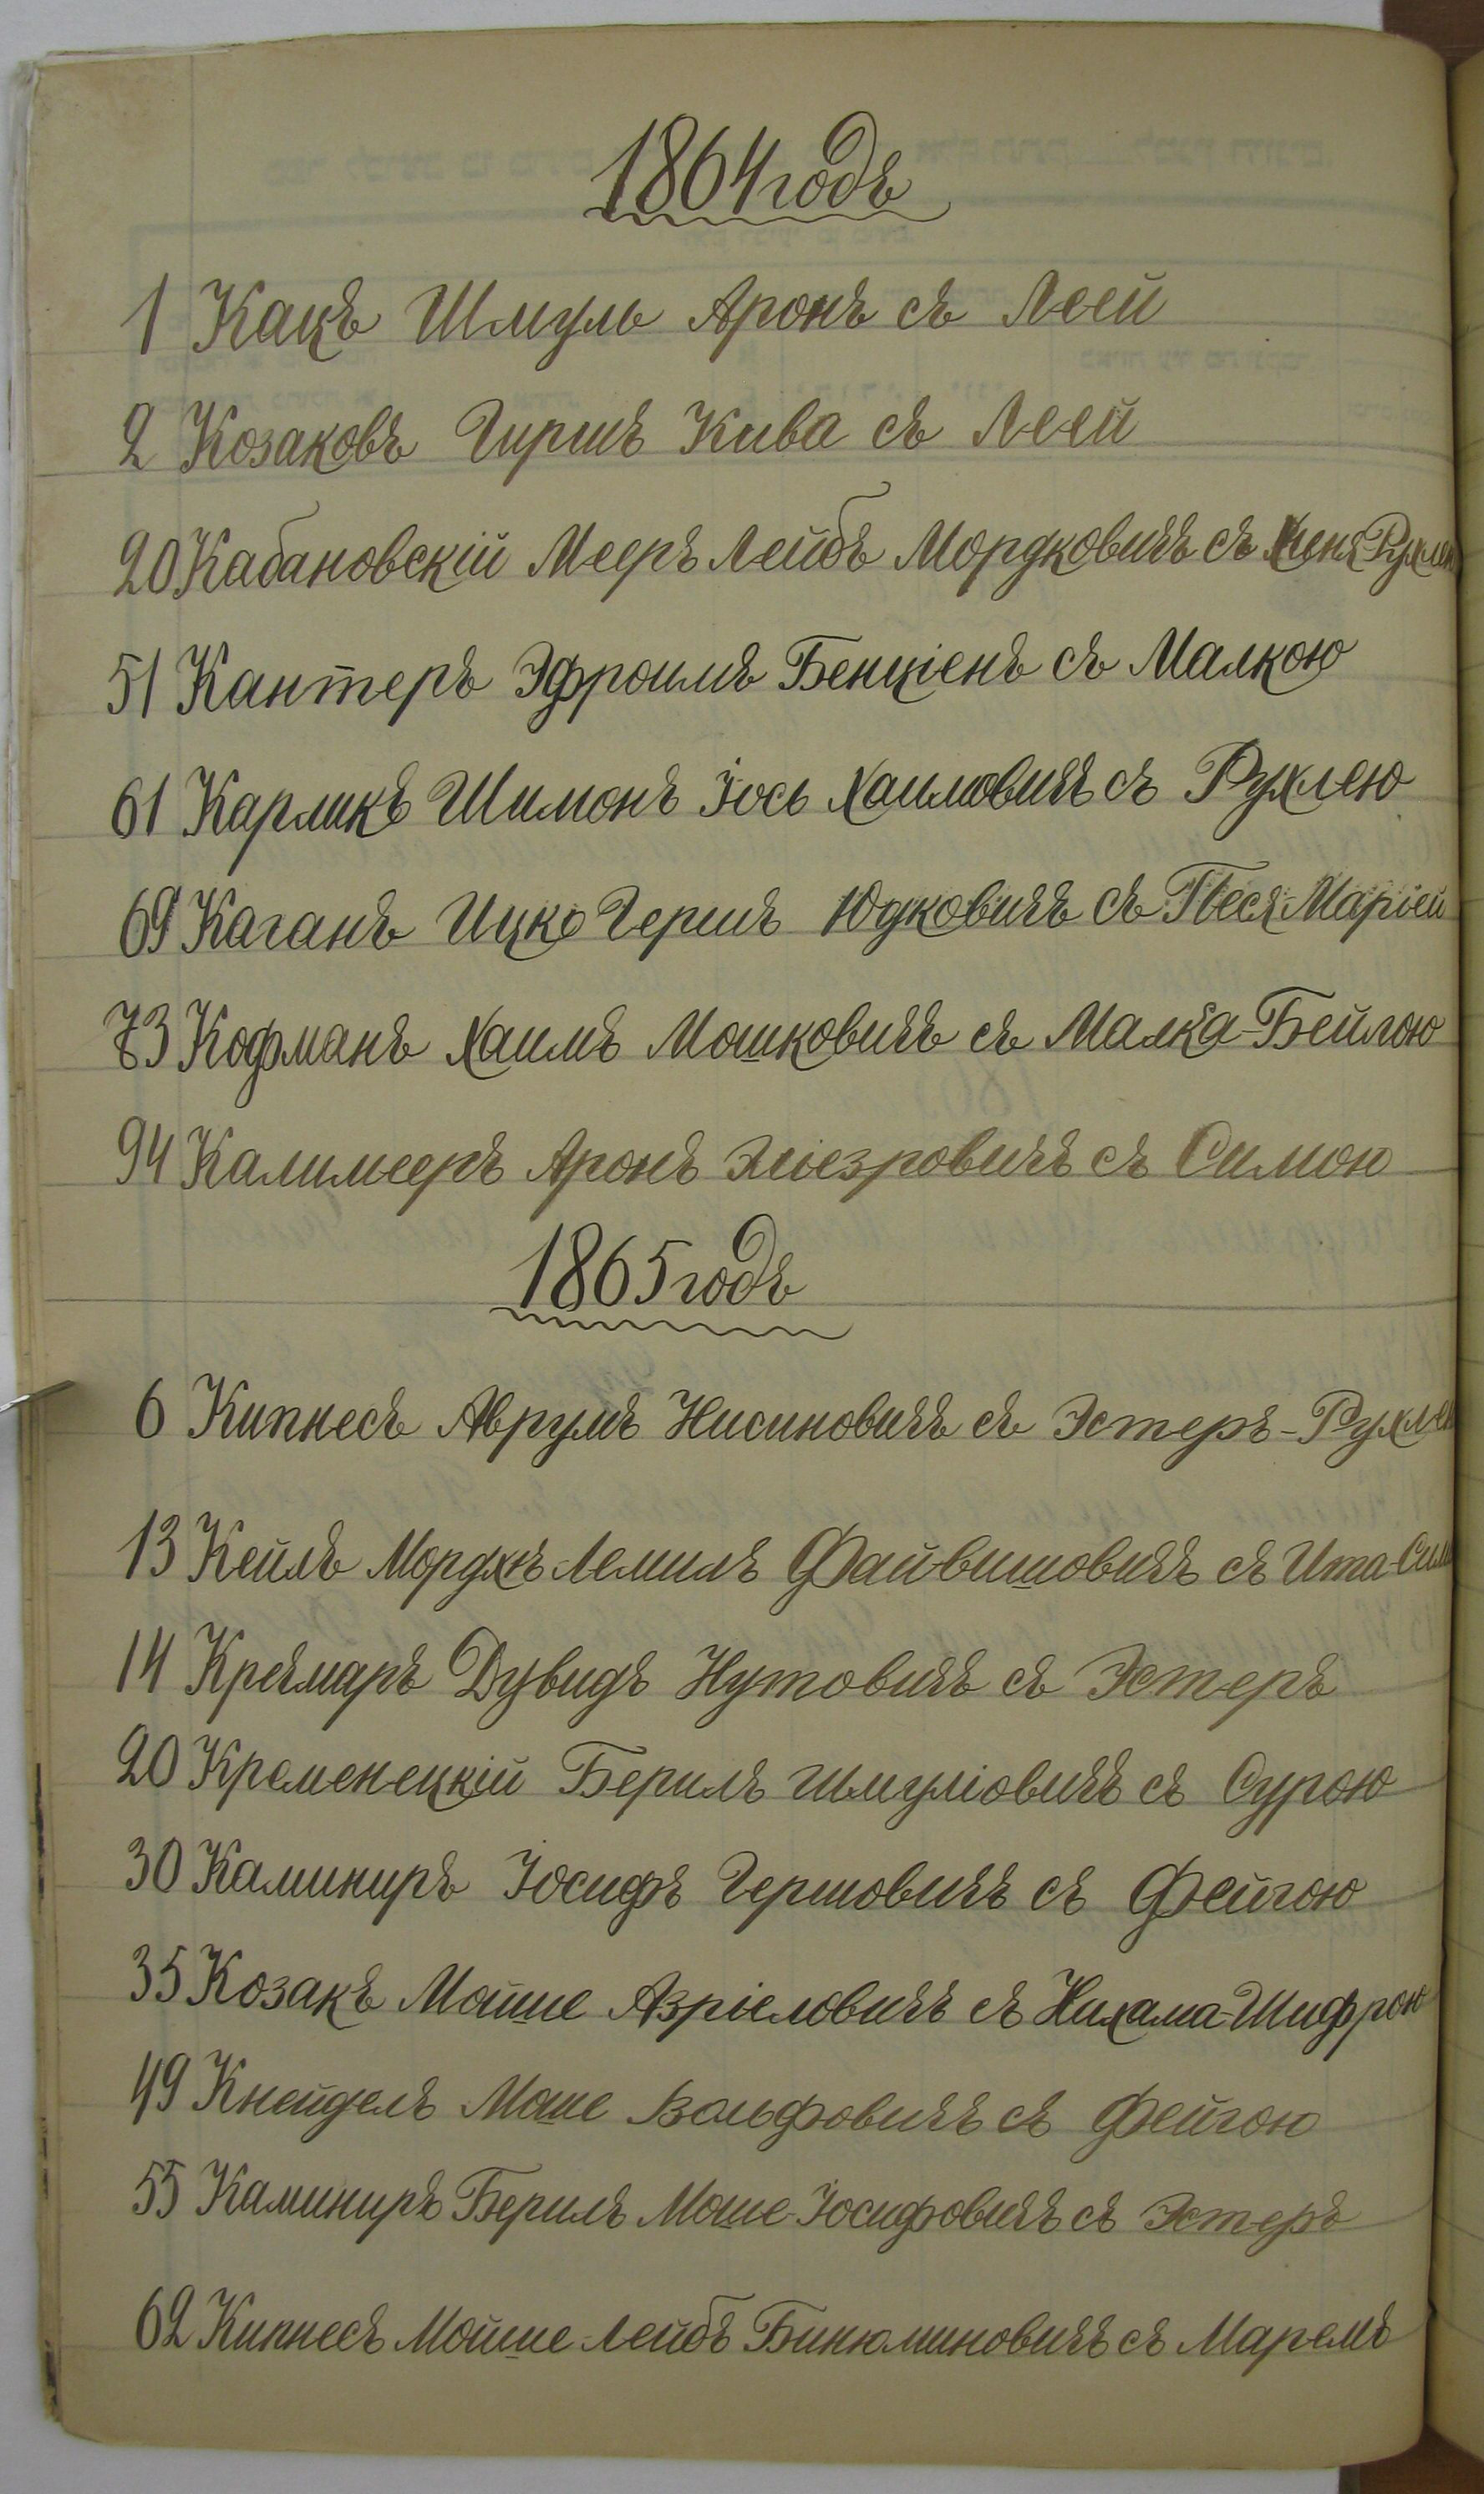 1864 годъ
1 Кацъ Шмуль Аронъ съ Леей
2 Козаковъ Гиршъ Кива съ Леей
20 Кабановскій Мееръ Лейбъ Мордковичъ съ
51 Кантеръ Эфроимъ Бенціенъ съ Малкою
61 Карликъ Шимонъ Іось Хаимовичъ съ Рухлею
69 Каганъ Ицко Гершъ Юдковичъ съ Песя Маріей
73 Кофманъ Хаимъ Мошковичъ съ Малка-Бейлою
94 Калимееръ Аронъ Эліезровичъ съ Симою
1865 годъ
6 Кипнесъ Аврумъ Нисиновичъ съ Эстеръ-Рухлею
13 Кейлъ Мордхъ Лемилъ Файвишовичъ съ Ита-
14 Кречмаръ Дувидъ Нутовичъ съ Эстеръ
20 Кременецкій Берилъ Шмуліовичъ съ Сурою
30 Каминиръ Іосифъ Гершовичъ съ Фейгою
35 Козакъ Мойше Азріеловичъ съ Нихама-Шифрою
49 Кнейделъ Моше Вольфовичъ съ Фейгою
55 Каминиръ Берилъ Моше-Іосифовичъ съ Эстеръ
62 Кипнесъ Мойше-Лейбъ Бинюминовичъ съ Маремъ